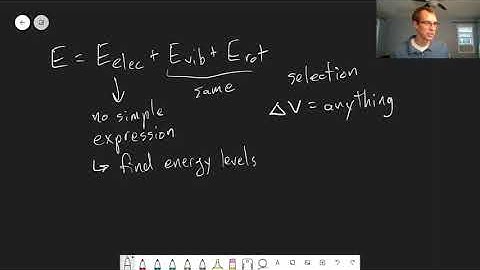 E = E_elec + E_vib + E_rot
same
no simple
expression
↳ find energy levels
selection
ΔV = anything